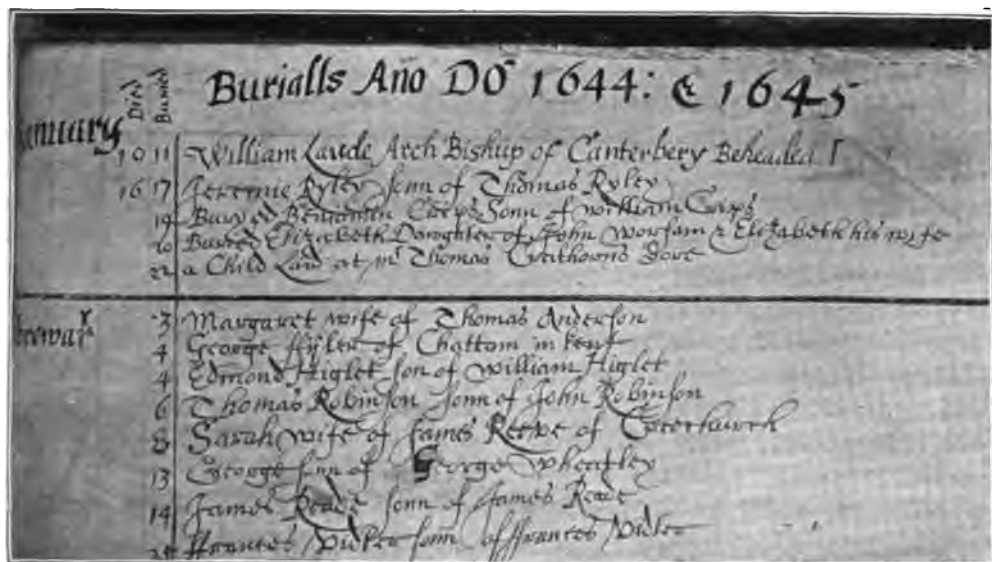 Burialls Año DÕ 1644: & 1645
Died Buried
January
10 11 William Laude Arch Bishup of Canterbery Beheaded
16 17 Jeremie Ryley sonn of Thomas Ryley
19 Buryed Beniamin Sonn of William
20 Buried Elizabeth Daughter of John Worsam & Elizabeth his wife
22 a Child Laid at mr Thomas dore
3 Margaret wife of Thomas Anderson
4 George of Chattom in kent
4 Edmond Higlet son of William Higlet
6 Thomas Robinson sonn of John Robinson
8 Sarah wife of James of
13 George sonn of George Wheatley
14 James sonn of James
ffrances sonn of ffrances